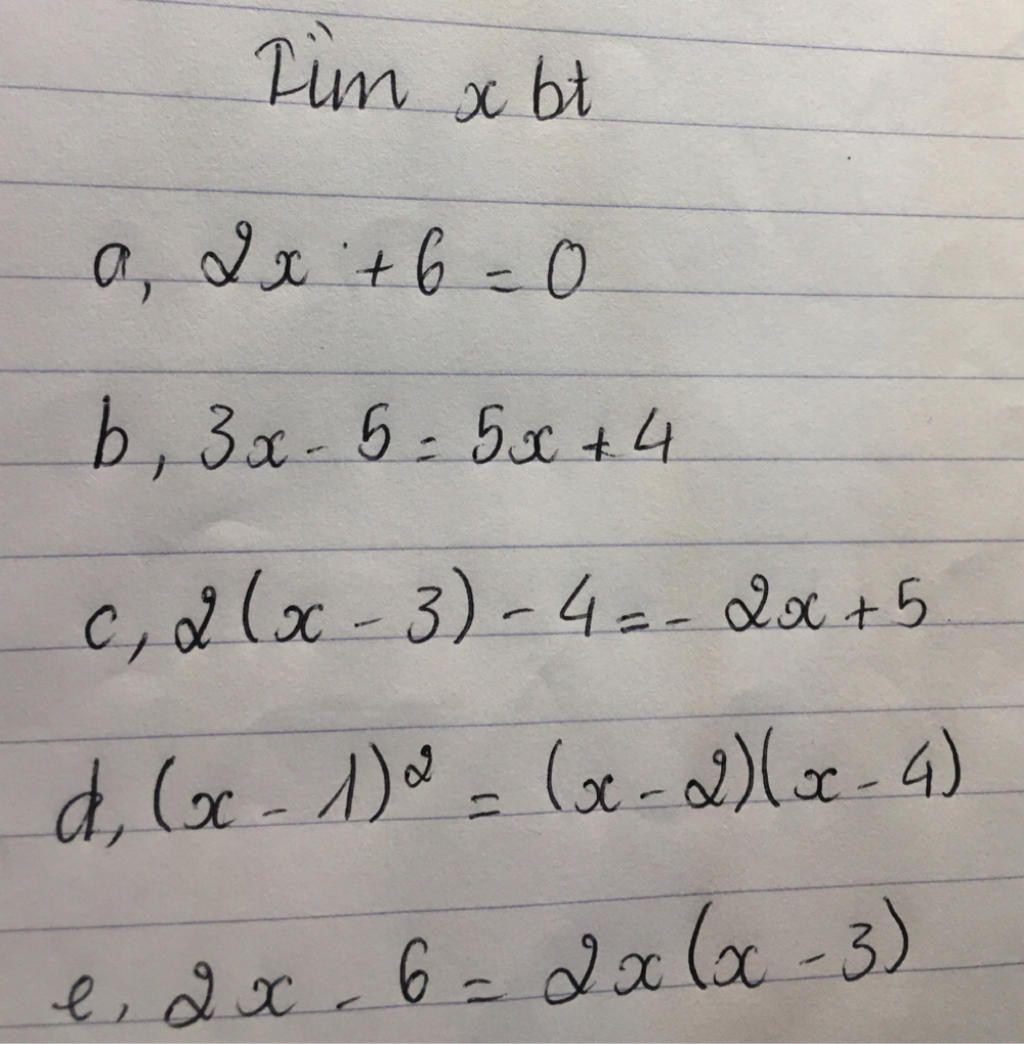 Tìm x bt
a, 2x + 6 = 0
b, 3x - 5 = 5x + 4
c, 2(x - 3) - 4 = - 2x + 5
d, (x - 1)² = (x - 2)(x - 4)
e, 2x - 6 = 2x(x - 3)